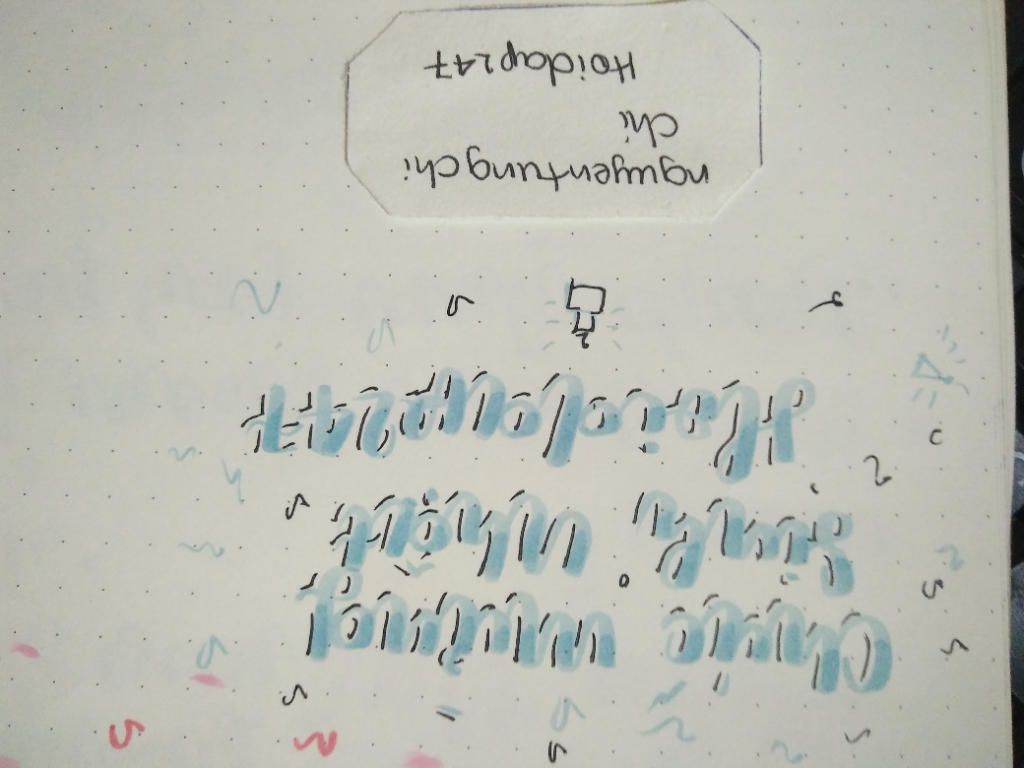 Chúc mừng
Sinh nhật
Hoidap247
nguyentungchi
chi
Hoidap247